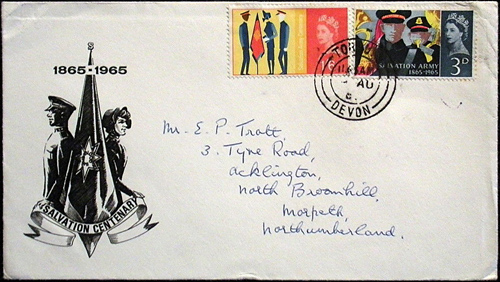 1865-1965
SALVATION CENTENARY
SALVATION ARMY
1865-1965
3D
AU
DEVON
Mr. E. P. Tratt,
3. Tyne Road,
Acklington,
North Broomhill,
Morpeth,
Northumberland.